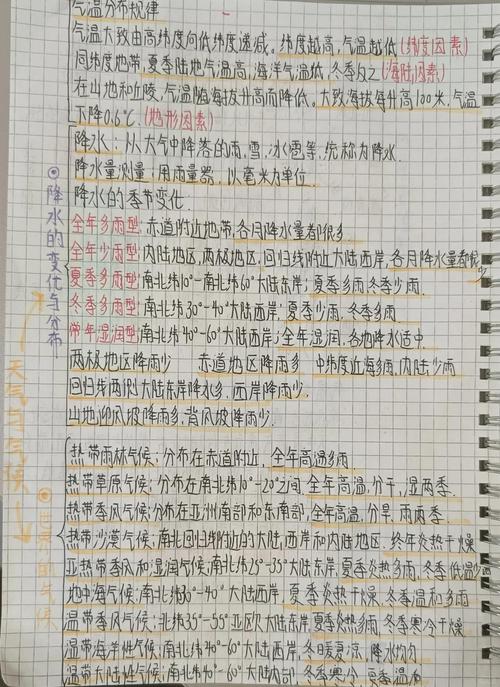 气温分布规律
气温大致由高纬度向低纬度递减。纬度越高,气温越低(纬度因素)
同纬度地带,夏季陆地气温高,海洋气温低,冬季反之(海陆因素)
在山地和丘陵,气温随海拔升高而降低。大致海拔每升高100米,气温
下降0.6℃(地形因素)
降水的变化与分布
降水:从大气中降落的雨,雪,冰雹等,统称为降水.
降水量测量:用雨量器,以毫米为单位
降水的季节变化.
全年多雨型:赤道附近地带,各月降水量都很多.
全年少雨型:内陆地区,两极地区,回归线附近大陆西岸,各月降水量都很少
夏季多雨型:南北纬10°-南北纬60°大陆东岸;夏季多雨冬季少雨.
冬季多雨型:南北纬30°-40°大陆西岸,夏季少雨,冬季多雨
常年湿润型:南北纬40°-60°大陆西岸;全年湿润,各地降水适中.
两极地区降雨少 赤道地区降雨多 中纬度近海多雨,内陆少雨
回归线两测大陆东岸降水多,西岸降雨少.
山地迎风坡降雨多,背风坡降雨少.
天气与气候
世界的气候
热带雨林气候:分布在赤道附近,全年高温多雨
热带草原气候:分布在南北纬10°-20°之间,全年高温,分干,湿两季.
热带季风气候:分布在亚洲南部和东南部,全年高温,分旱.雨两季.
热带沙漠气候:南北回归线附近的大陆西岸和内陆地区,终年炎热干燥
亚热带季风和湿润气候:南北纬25°-35°大陆东岸,夏季炎热多雨,冬季低温少雨
地中海气候:南北纬30°-40°大陆西岸,夏季炎热干燥,冬季温和多雨
温带季风气候:北纬35°-55°亚欧大陆东岸,夏季炎热多雨,冬季寒冷干燥
温带海洋性气候:南北纬40°-60°大陆西岸,冬暖夏凉,降水均匀
温带大陆性气候:南北纬40°-60°大陆内部,冬季寒冷,夏季温